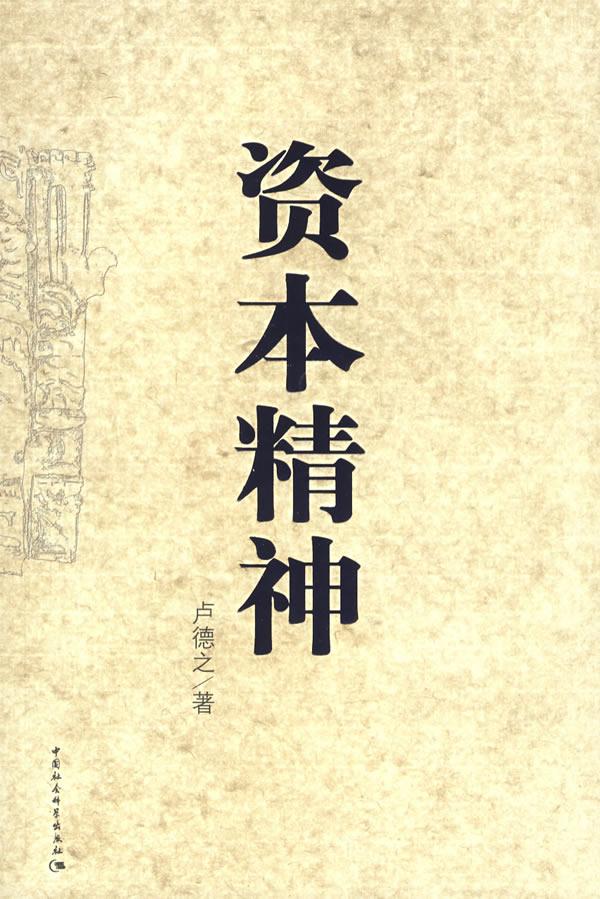 资本精神
卢德之/著
中国社会科学出版社